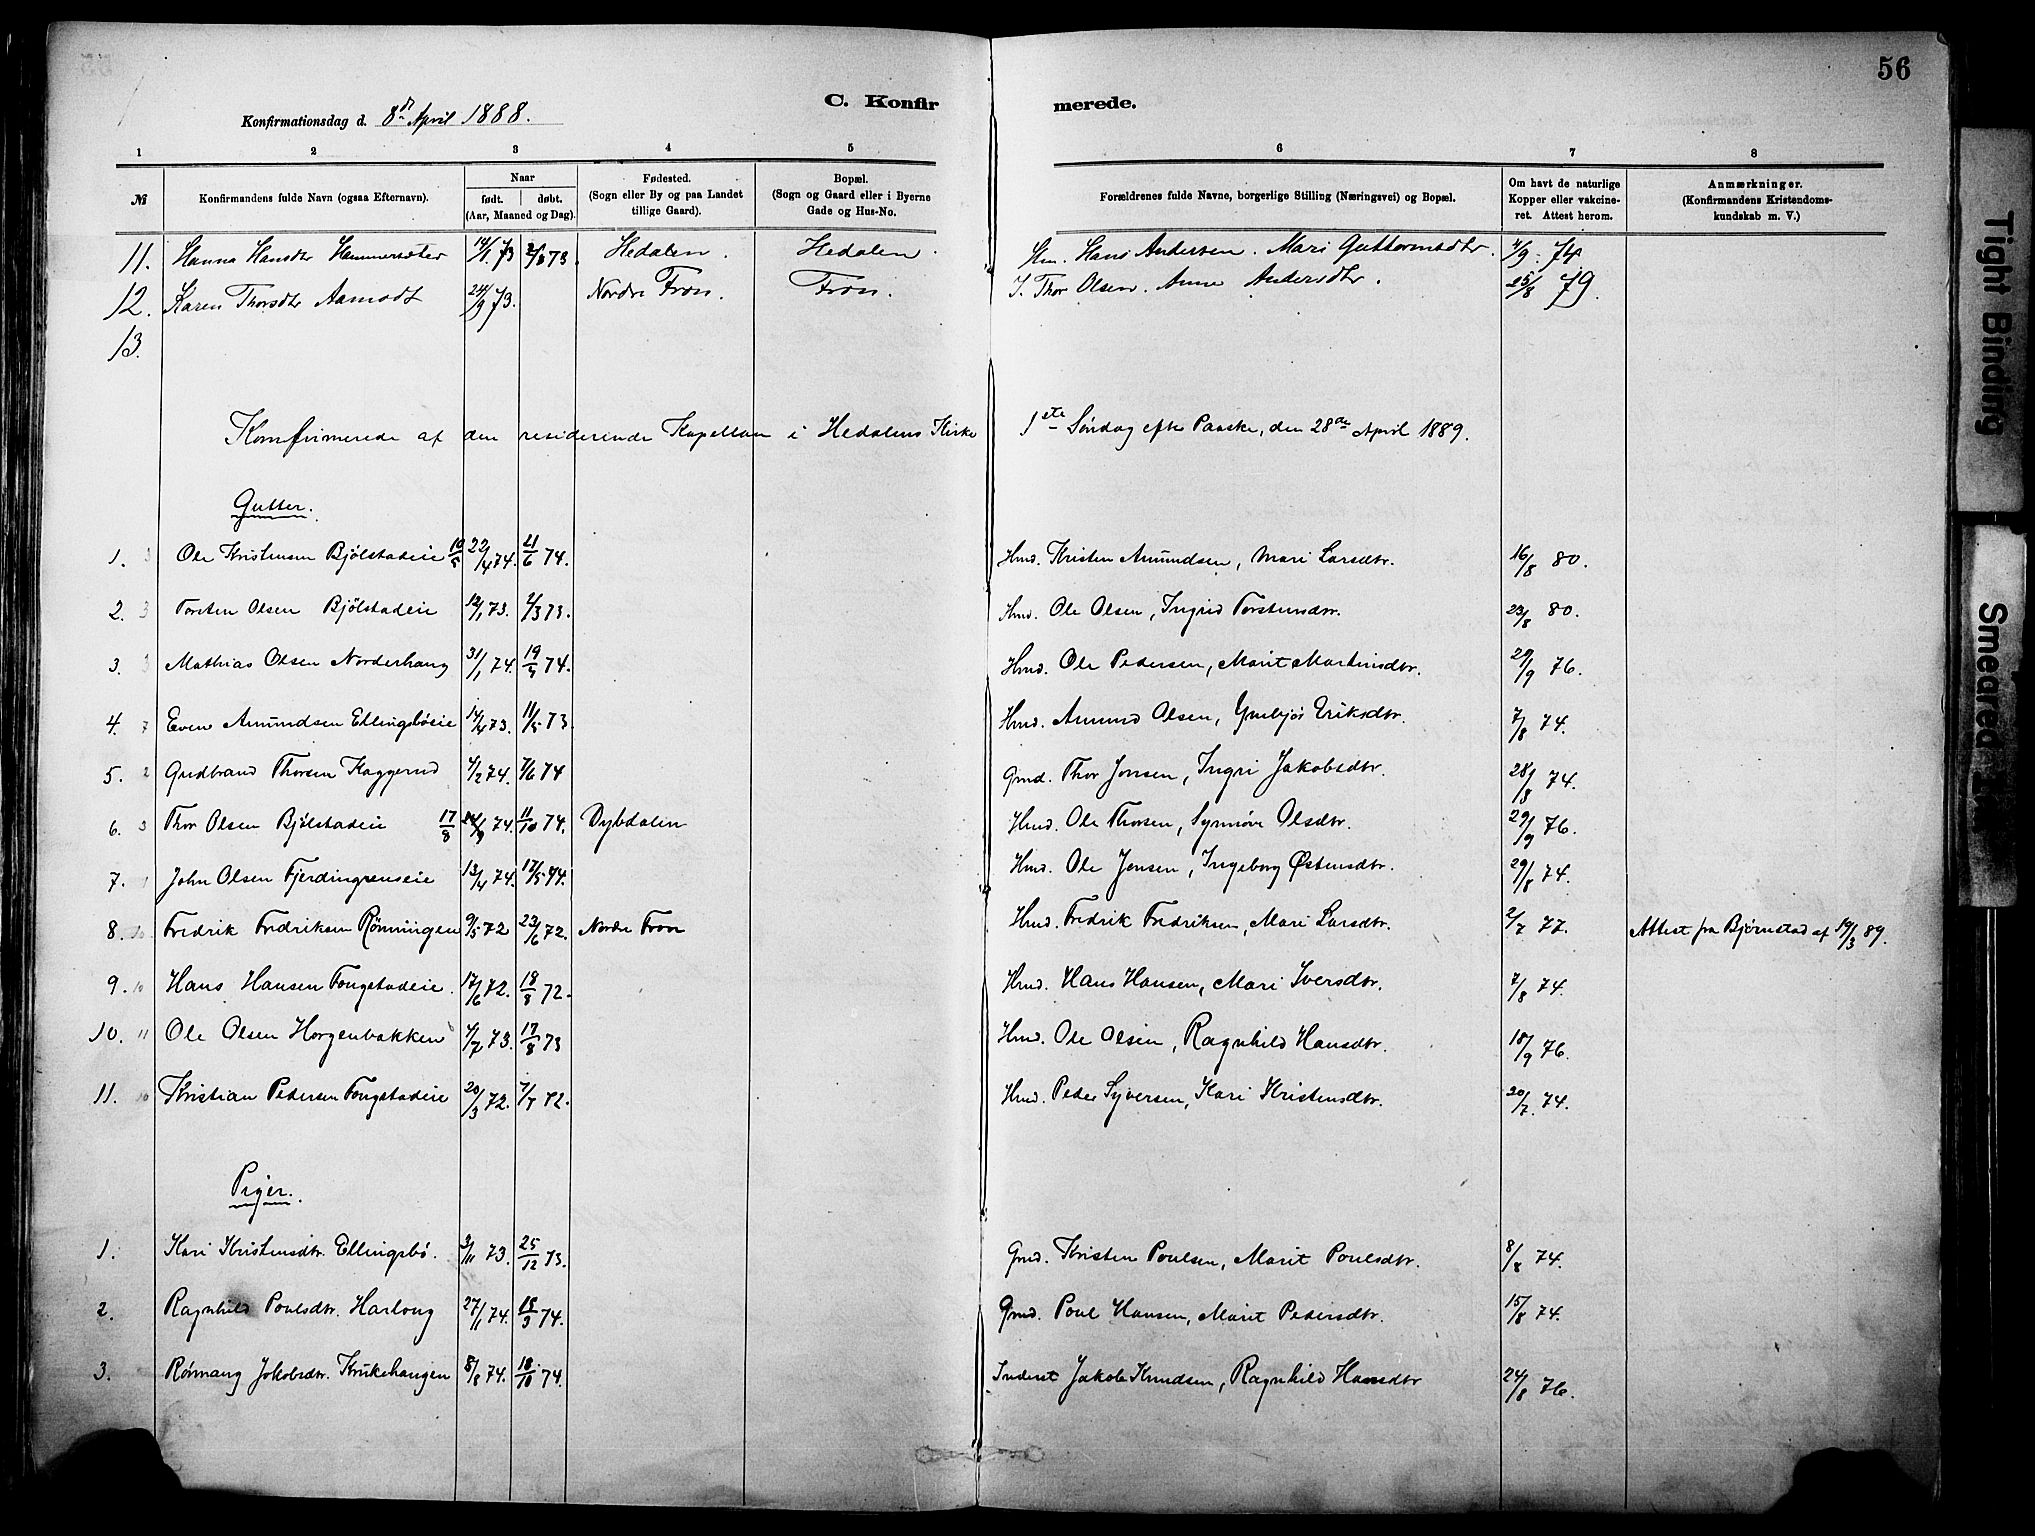 56
C. Konfirmerede.
Konfirmationsdag d. 8de April 1888.
1 2 3 4 5 6 7 8
№ Konfirmandens fulde Navn (ogsaa Efternavn). Naar født. døbt. (Aar, Maaned og Dag). Fødested. (Sogn eller By og paa Landet tillige Gaard). Bopæl. (Sogn og Gaard eller i Byerne Gade og Hus-No. Forældrenes fulde Navne, borgerlige Stilling (Næringsvei) og Bopæl. Om havt de naturlige Kopper eller vakcineret. Attest herom. Anmærkninger. (Konfirmandens Kristendomskundskab m. V.)
11. Hanna Hansdtr Hammersæter 14/1 73 2/3 73. Hedalen. Hedalen. Hm. Hans Andersen. Mari Guttormsdtr. 4/9. 74
12. Karen Thorsdtr Aamodt 24/9 73. Nordre Fron. Fron. I. Thor Olsen. Anne Andersdtr. 25/8 79.
13.
Komfirmerede af den residerende Kapellan i Hedalens Kirke 1ste Søndag efter Paaske, den 28de April 1889.
Gutter.
1. 3 Ole Kristensen Bjølstadeie 10/5 22/4 74. 21/6 74. Hmd. Kristen Amundsen, Mari Larsdtr. 16/8 80.
2. 3 Torsten Olsen Bjølstadeie 12/1 73. 2/3 73. Hmd. Ole Olsen, Ingrid Torstensdtr. 23/8 80.
3. 3 Mathias Olsen Norderhaug 31/1 74. 19/4 74. Hmd. Ole Pedersen, Marit Martinsdtr. 29/9 76.
4. 7 Even Amundsen Ellingsbøeie 14/4 73. 11/5 73. Hmd. Amund Olsen, Gunbjør Eriksdtr. 7/8 74.
5. 2 Gudbrand Thorsen Kaggerud 4/2 74. 7/6 74 Gmd. Thor Jonsen, Ingri Jakobsdtr. 28/8 74.
6. 3 Thor Olsen Bjølstadeie 17/8 74. 11/10 74. Dybdalen Hmd. Ole Thorsen, Synnøve Olsdtr. 29/9 76.
7. 1 John Olsen Fjerdingreneie 13/4 74. 17/5 74. Hmd. Ole Jonsen, Ingeborg Østensdtr. 29/8 74.
8. 10 Fredrik Fredriksen Rønningen 9/5 72 23/6 72. Nordre Fron Hmd. Fredrik Fredriksen, Mari Larsdtr. 2/7 77. Attest fra Bjørnstad af 19/3 89.
9. 10 Hans Hansen Tougstadeie. 17/6 72. 18/8 72. Hmd. Hans Hansen, Mari Iversdtr. 7/8 74.
10. 11 Ole Olsen Horgenbakken 4/7 73. 17/8 73 Hmd. Ole Olsen, Ragnhild Hansdtr. 18/9 76.
11. 10 Kristian Pedersen Tougstadeie 20/3 72. 7/7 72. Hmd. Peder Syversen, Kari Kristensdtr. 20/7. 74.
Piger.
1. Kari Kristensdtr. Ellingsbø. 3/11 73. 25/12 73. Gmd. Kristen Poulsen, Marit Poulsdtr. 8/8 74.
2. Ragnhild Poulsdtr. Harlong 27/1 74. 15/3 74. Gmd. Poul Hansen, Marit Pedersdtr. 15/8 74.
3. Rønnaug Jakobsdtr. Krukehaugen 8/8 74. 18/10 74. Inderst Jakob Knudsen, Ragnhild Hansdtr 24/8 76.
Tight Binding
Smeared